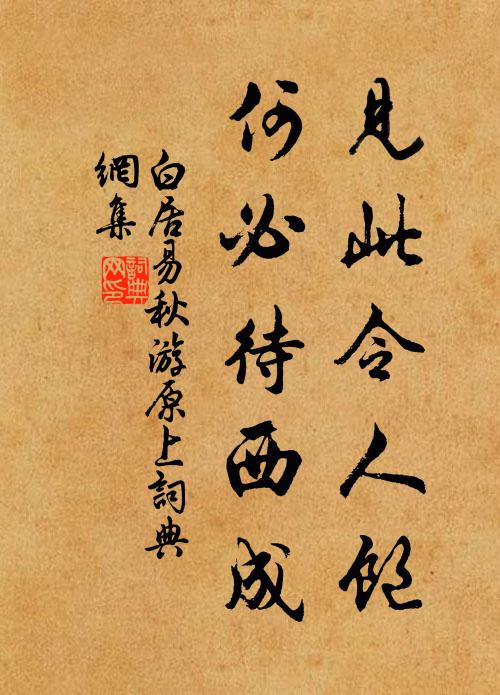 見此令人飽
何必待西成
白居易秋游原上詞典
網集
詞典
网印